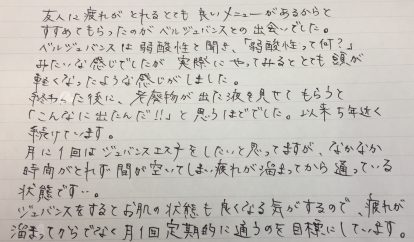 友人に疲れがとれるとても良いメニューがあるからと
すすめてもらったのがベルジュバンスとの出会いでした。
ベルジュバンスは弱酸性と聞き、「弱酸性って何?」
みたいな感じでしたが実際にやってみるととても頭が
軽くなったような感じがしました。
終わった後に、老廃物が出た液を見せてもらうと
「こんなに出たんだ!!」と思うほどでした。以来5年近く
続けています。
月に1回はジュバンスエステをしたいと思ってますが、なかなか
時間がとれず間が空いてしまい疲れが溜まってから通っている
状態です…。
ジュバンスをするとお肌の状態も良くなる気がするので、疲れが
溜まってからでなく月1回定期的に通うのを目標にしています。